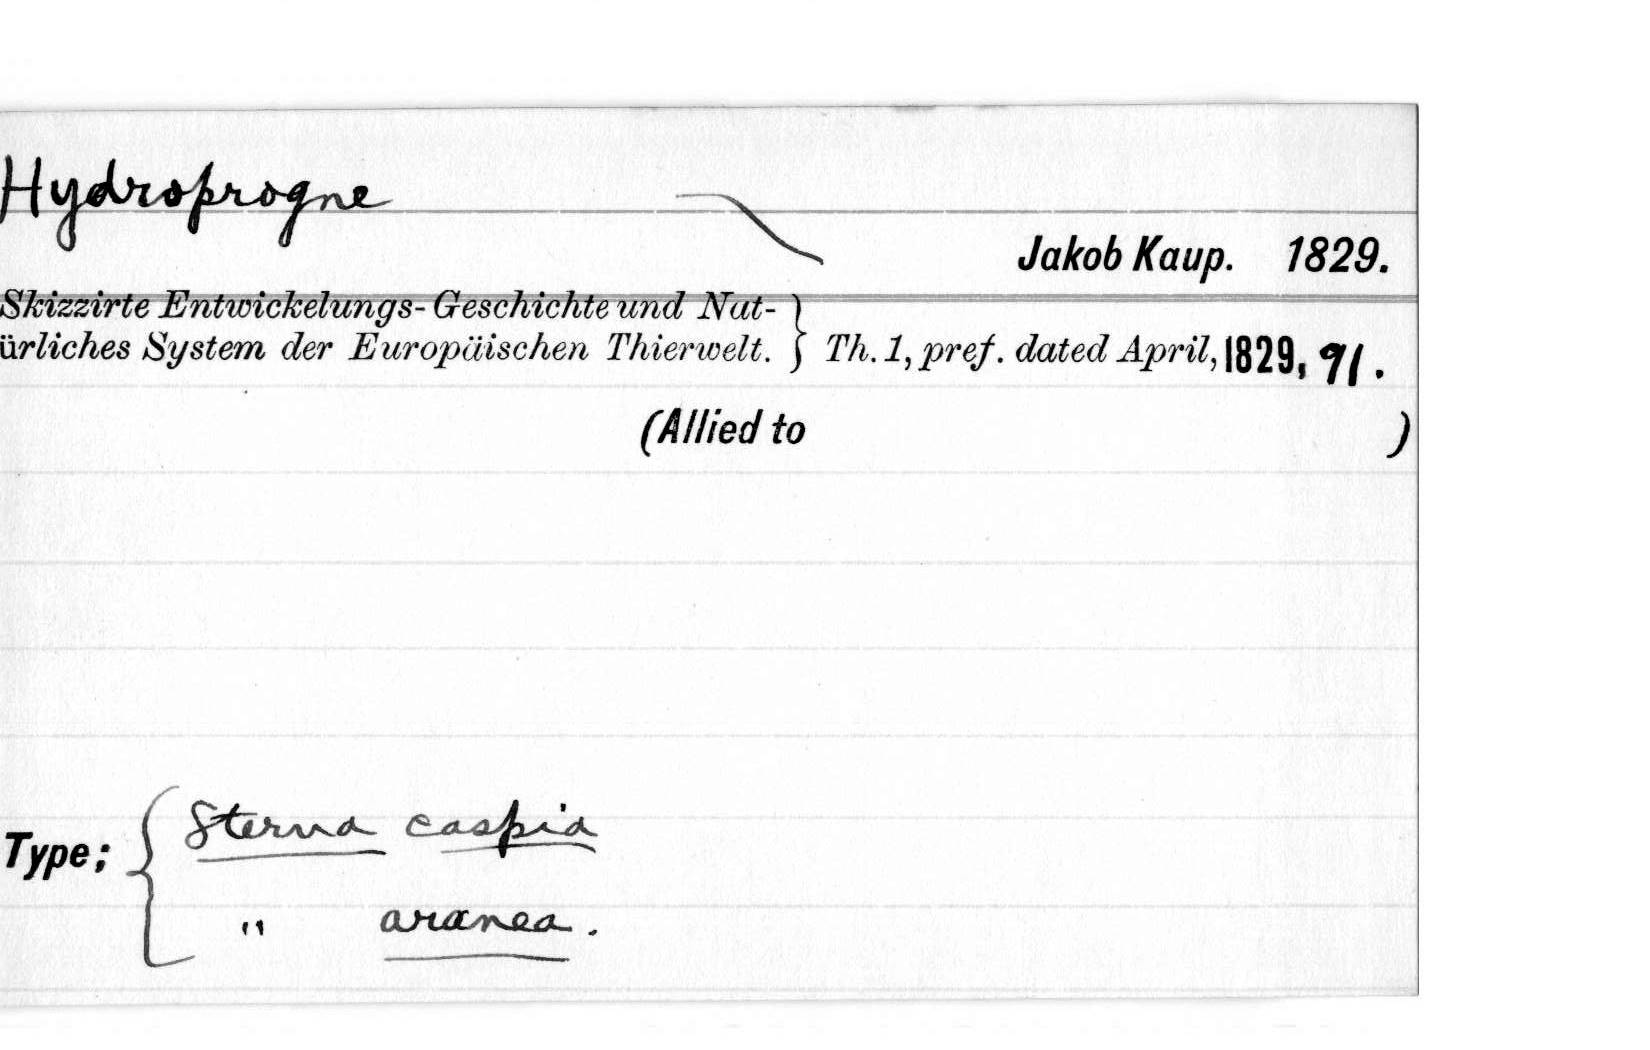 Hydroprogne
Jakob Kaup. 1829.
Skizzirte Entwickelungs-Geschichte und Nat-
ürliches System der Europäischen Thierwelt. } Th. 1, pref. dated April, 1829, 91.
(Allied to )
Type; { Sterna caspia
" aranea.